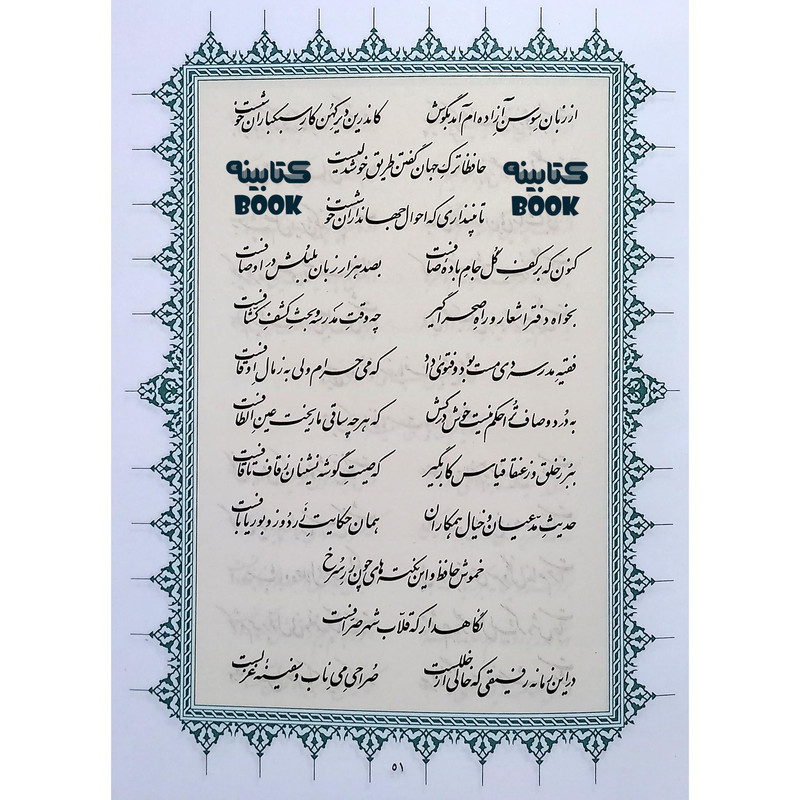 از زبان سوسن آزاده‌ام آمد بگوش کاندرین دیر کهن کار سبکباران خوشست
حافظا ترک جهان گفتن طریق خوشدلیست
کتابینه BOOK
کتابینه BOOK
تا نپنداری که احوال جهانداران خوشست
کنون که بر کف گل جام باده صافست بصد هزار زبان بلبلش در اوصافست
بخواه دفتر اشعار و راه صحرا گیر چه وقت مدرسه و بحث کشف کشافست
فقیه مدرسه دی مست بود و فتوی داد که می حرام ولی به ز مال اوقافست
به درد و صاف ترا حکم نیست خوش درکش که هرچه ساقی ما ریخت عین الطافست
ببر ز خلق و ز عنقا قیاس کار بگیر که صیت گوشه‌نشینان ز قاف تا قافست
حدیث مدعیان و خیال همکاران همان حکایت زردوز و بوریابافست
خموش حافظ و این نکته‌های چون زر سرخ
نگاهدار که قلاب شهر صرافست
در این زمانه رفیقی که خالی از خللست صراحی می ناب و سفینه غزلست
۵۱